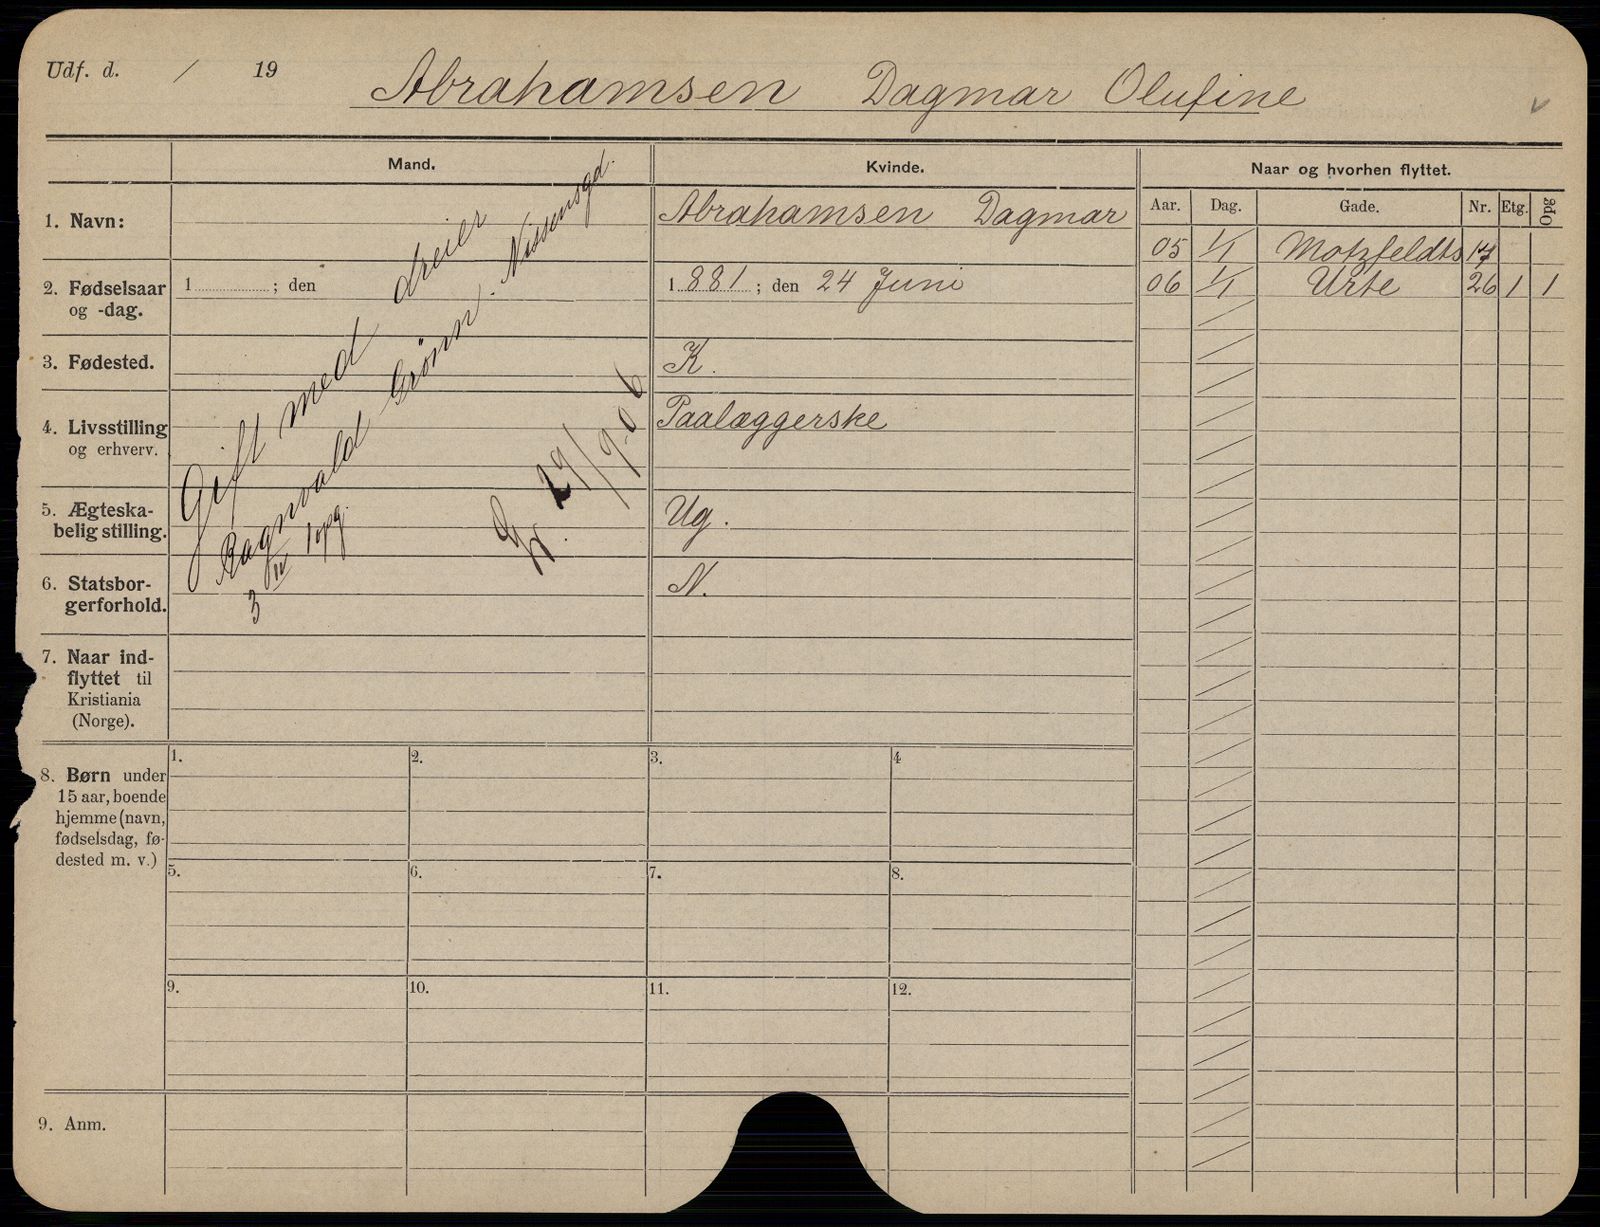 Udf. d. / 19
Abrahamsen Dagmar Olufine
Mand.
Kvinde.
Naar og hvorhen flyttet.
Aar. Dag. Gade. Nr. Etg. Opg
1. Navn:
Abrahamsen Dagmar
05 1/1 Motzfeldts 17
2. Fødselsaar
og -dag.
1 ; den
1881; den 24 Juni
06 1/1 Urte 26 1 1
3. Fødested.
K.
4. Livsstilling
og erhverv.
Paalæggerske
5. Ægteska-
belig stilling.
Ug.
6. Statsbor-
gerforhold.
N.
Gift med dreier
Ragnvald Grönn. Nissensgd.
3 IV 1 opg.
29/9-06
7. Naar ind-
flyttet til
Kristiania
(Norge).
8. Børn under
15 aar, boende
hjemme (navn,
fødselsdag, fø-
dested m. v.)
1. 2. 3. 4
5. 6. 7. 8.
9. 10. 11. 12.
9. Anm.